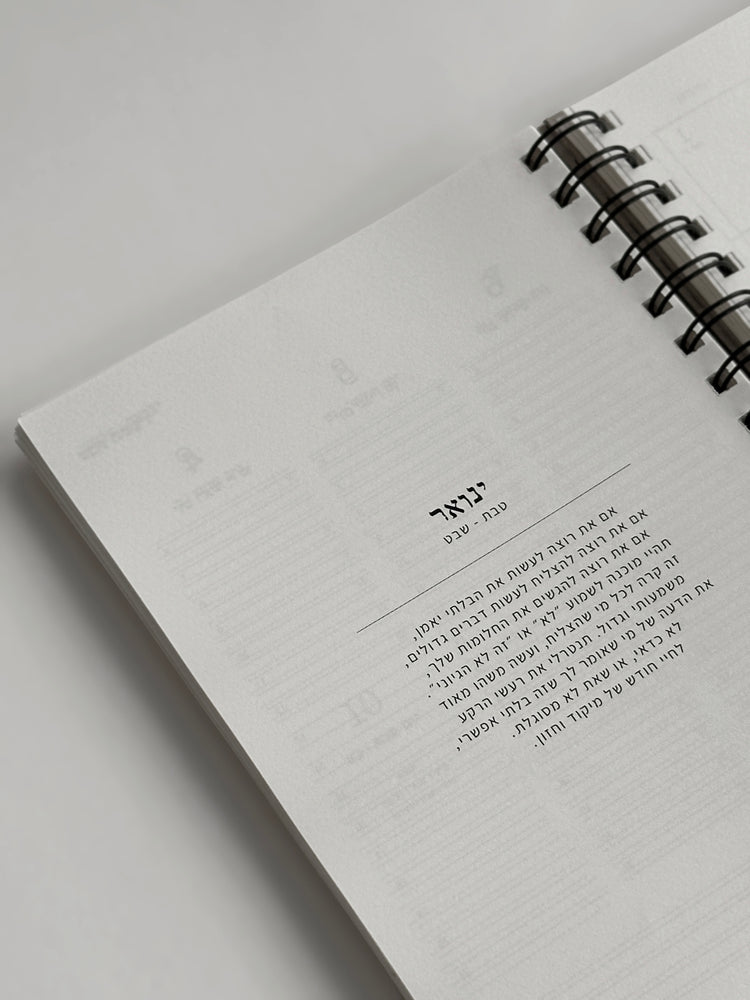 ינואר
טבת - שבט
אם את רוצה לעשות את הבלתי יאמן,
אם את רוצה להצליח לעשות דברים גדולים,
אם את רוצה להגשים את החלומות שלך,
תהיי מוכנה לשמוע "לא" או "זה לא הגיוני".
זה קרה לכל מי שהצליח, ועשה משהו מאוד
משמעותי וגדול. תנטרלי את רעשי הרקע
את הדעה של מי שאומר לך שזה בלתי אפשרי,
לא כדאי, או שאת לא מסוגלת.
לחיי חודש של מיקוד וחזון.